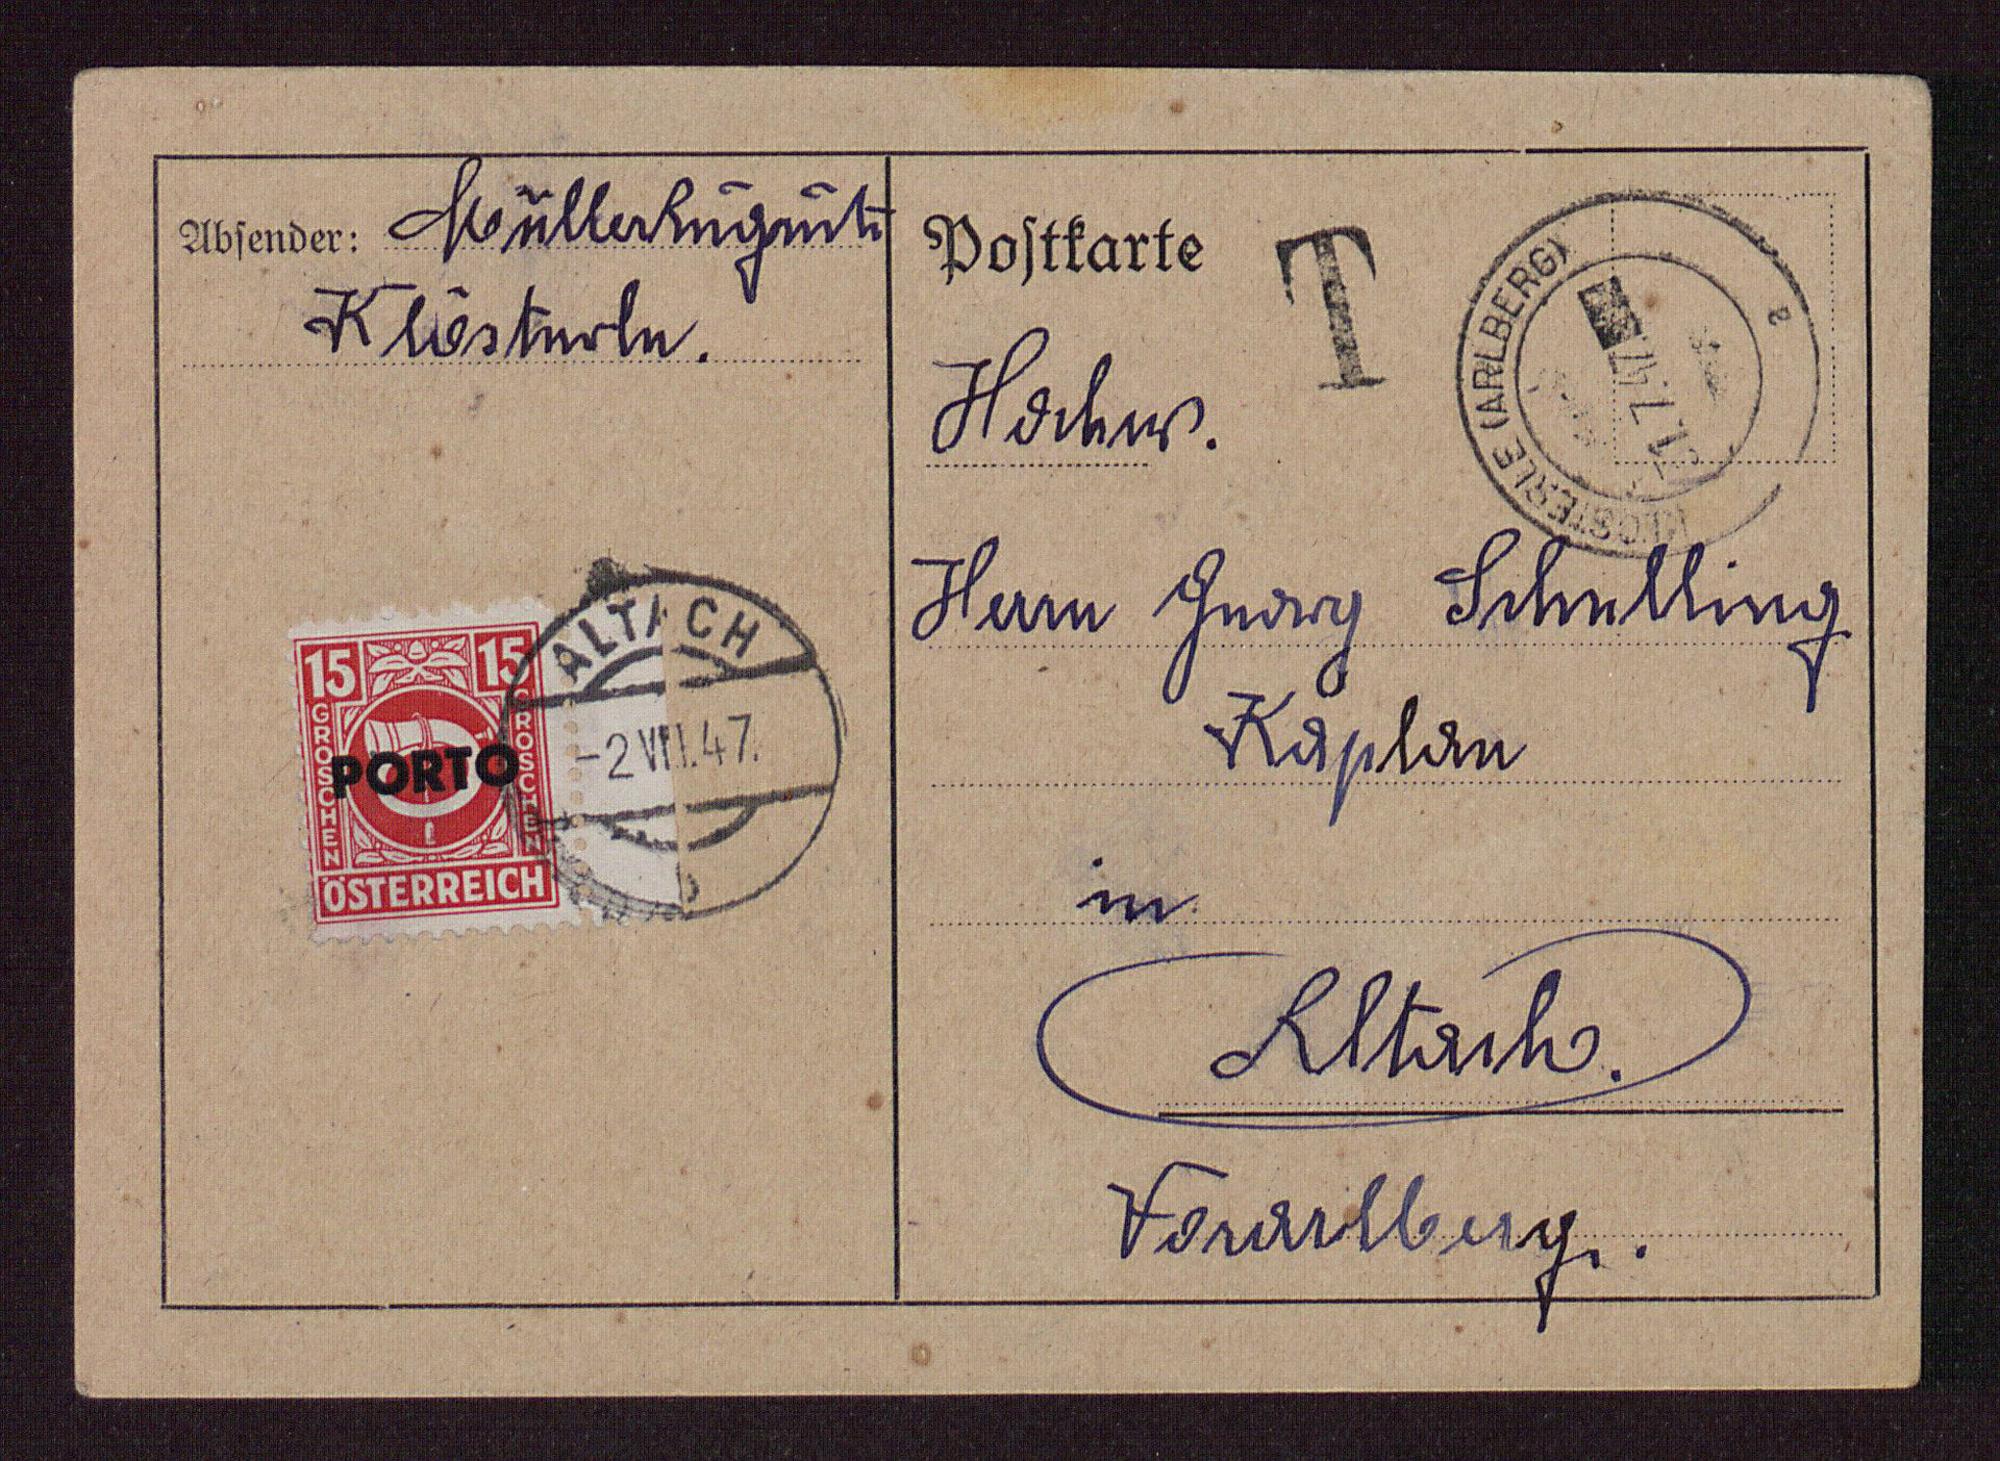 Absender:
Klösterle.
Postkarte
T
KLÖSTERLE (ARLBERG)
31.7.47
a
Hochw.
Herrn Georg Schelling
Kaplan
in
Altach.
Vorarlberg.
15 15
GROSCHEN GROSCHEN
PORTO
ÖSTERREICH
ALTACH
-2.VIII.47.